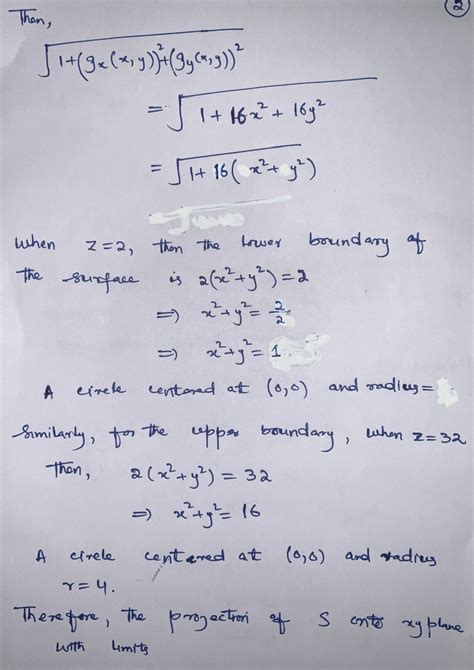 2
Then,
√1+(gx(x,y))²+(gy(x,y))²
= √1+16x²+16y²
= √1+16(x²+y²)
When z=2, then the lower boundary of
the surface is 2(x²+y²)=2
⇒ x²+y²= 2/2
⇒ x²+y²= 1
A circle centered at (0,0) and radius=
Similarly, for the upper boundary, when z=32
then, 2(x²+y²) = 32
⇒ x²+y²= 16
A circle centered at (0,0) and radius
r=4.
Therefore, the projection of S onto xy plane
with limits